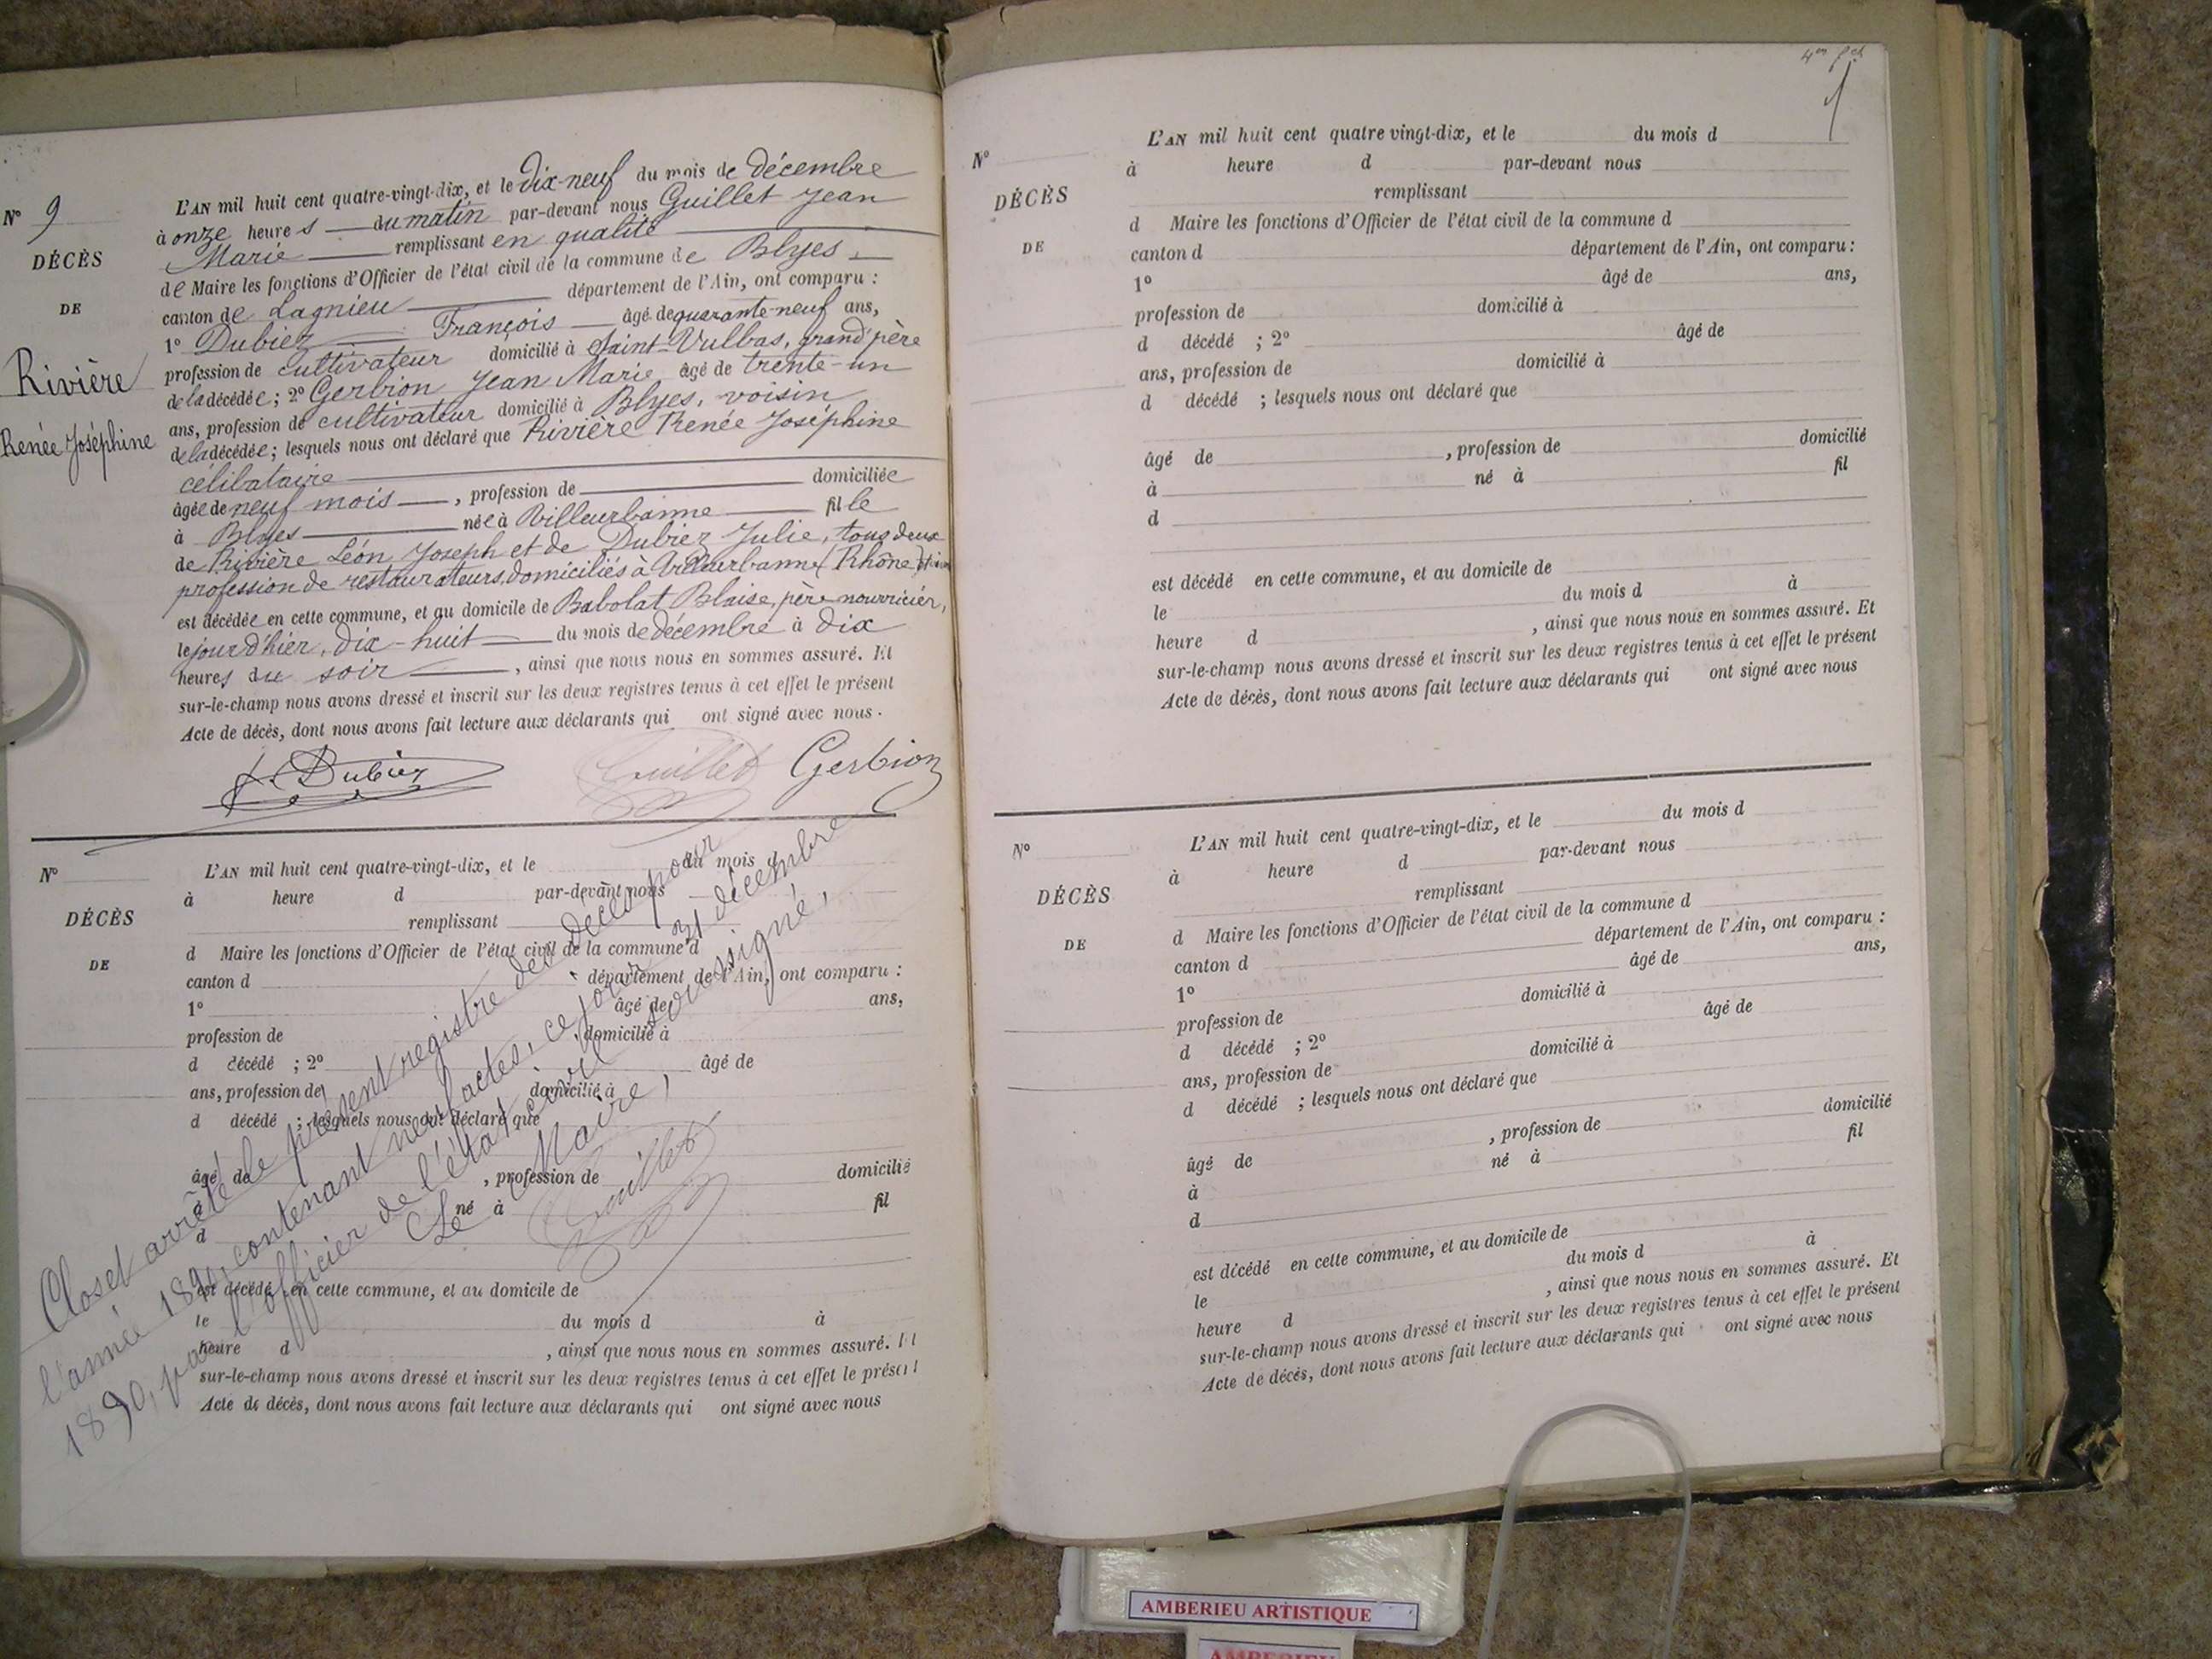 N° 9
DÉCÈS
DE
Rivière
Renée Joséphine
L'AN mil huit cent quatre-vingt-dix, et le dix-neuf du mois de décembre
à onze heures du matin par-devant nous Guillet Jean
Marie remplissant en qualité
de Maire les fonctions d'Officier de l'état civil de la commune de Blyes,
canton de Lagnieu département de l'Ain, ont comparu :
1° Dubiez François âgé de quarante-neuf ans,
profession de cultivateur domicilié à Saint-Vulbas, grand'père
de la décédée ; 2° Gerbion Jean Marie âgé de trente-un
ans, profession de cultivateur domicilié à Blyes, voisin
de la décédée ; lesquels nous ont déclaré que Rivière Renée Joséphine
célibataire
âgée de neuf mois , profession de domiciliée
à Blyes née à Villeurbanne fille
de Rivière Léon Joseph et de Dubiez Julie, tous deux
profession de restaurateurs, domiciliés à Villeurbanne (Rhône)
est décédée en cette commune, et au domicile de Babolat Blaise, père nourricier,
le jour d'hier, dix-huit du mois de décembre à dix
heures du soir , ainsi que nous nous en sommes assuré. Et
sur-le-champ nous avons dressé et inscrit sur les deux registres tenus à cet effet le présent
Acte de décès, dont nous avons fait lecture aux déclarants qui ont signé avec nous.
Dubiez Guillet Gerbion
N°
DÉCÈS
DE
L'AN mil huit cent quatre-vingt-dix, et le du mois d
à heure d par-devant nous
remplissant
d Maire les fonctions d'Officier de l'état civil de la commune d
canton d département de l'Ain, ont comparu :
1° âgé de ans,
profession de domicilié à
d décédé ; 2° âgé de
ans, profession de domicilié à
d décédé ; lesquels nous ont déclaré que
âgé de , profession de domicilié
à né à fil
d
est décédé en cette commune, et au domicile de
le du mois d à
heure d , ainsi que nous nous en sommes assuré. Et
sur-le-champ nous avons dressé et inscrit sur les deux registres tenus à cet effet le présent
Acte de décès, dont nous avons fait lecture aux déclarants qui ont signé avec nous
Clos et arrêté le présent registre des décès pour
l'année 1890, contenant neuf actes, ce jour 31 décembre
1890, par l'officier de l'état civil soussigné,
Le Maire,
Guillet
N°
DÉCÈS
DE
L'AN mil huit cent quatre vingt-dix, et le du mois d
à heure d par-devant nous
remplissant
d Maire les fonctions d'Officier de l'état civil de la commune d
canton d département de l'Ain, ont comparu :
1° âgé de ans,
profession de domicilié à
d décédé ; 2° âgé de
ans, profession de domicilié à
d décédé ; lesquels nous ont déclaré que
âgé de , profession de domicilié
à né à fil
d
est décédé en cette commune, et au domicile de
le du mois d à
heure d , ainsi que nous nous en sommes assuré. Et
sur-le-champ nous avons dressé et inscrit sur les deux registres tenus à cet effet le présent
Acte de décès, dont nous avons fait lecture aux déclarants qui ont signé avec nous
N°
DÉCÈS
DE
L'AN mil huit cent quatre-vingt-dix, et le du mois d
à heure d par-devant nous
remplissant
d Maire les fonctions d'Officier de l'état civil de la commune d
canton d département de l'Ain, ont comparu :
1° âgé de ans,
profession de domicilié à
d décédé ; 2° âgé de
ans, profession de domicilié à
d décédé ; lesquels nous ont déclaré que
âgé de , profession de domicilié
à né à fil
d
est décédé en cette commune, et au domicile de
le du mois d à
heure d , ainsi que nous nous en sommes assuré. Et
sur-le-champ nous avons dressé et inscrit sur les deux registres tenus à cet effet le présent
Acte de décès, dont nous avons fait lecture aux déclarants qui ont signé avec nous
AMBERIEU ARTISTIQUE
AMBERIEU